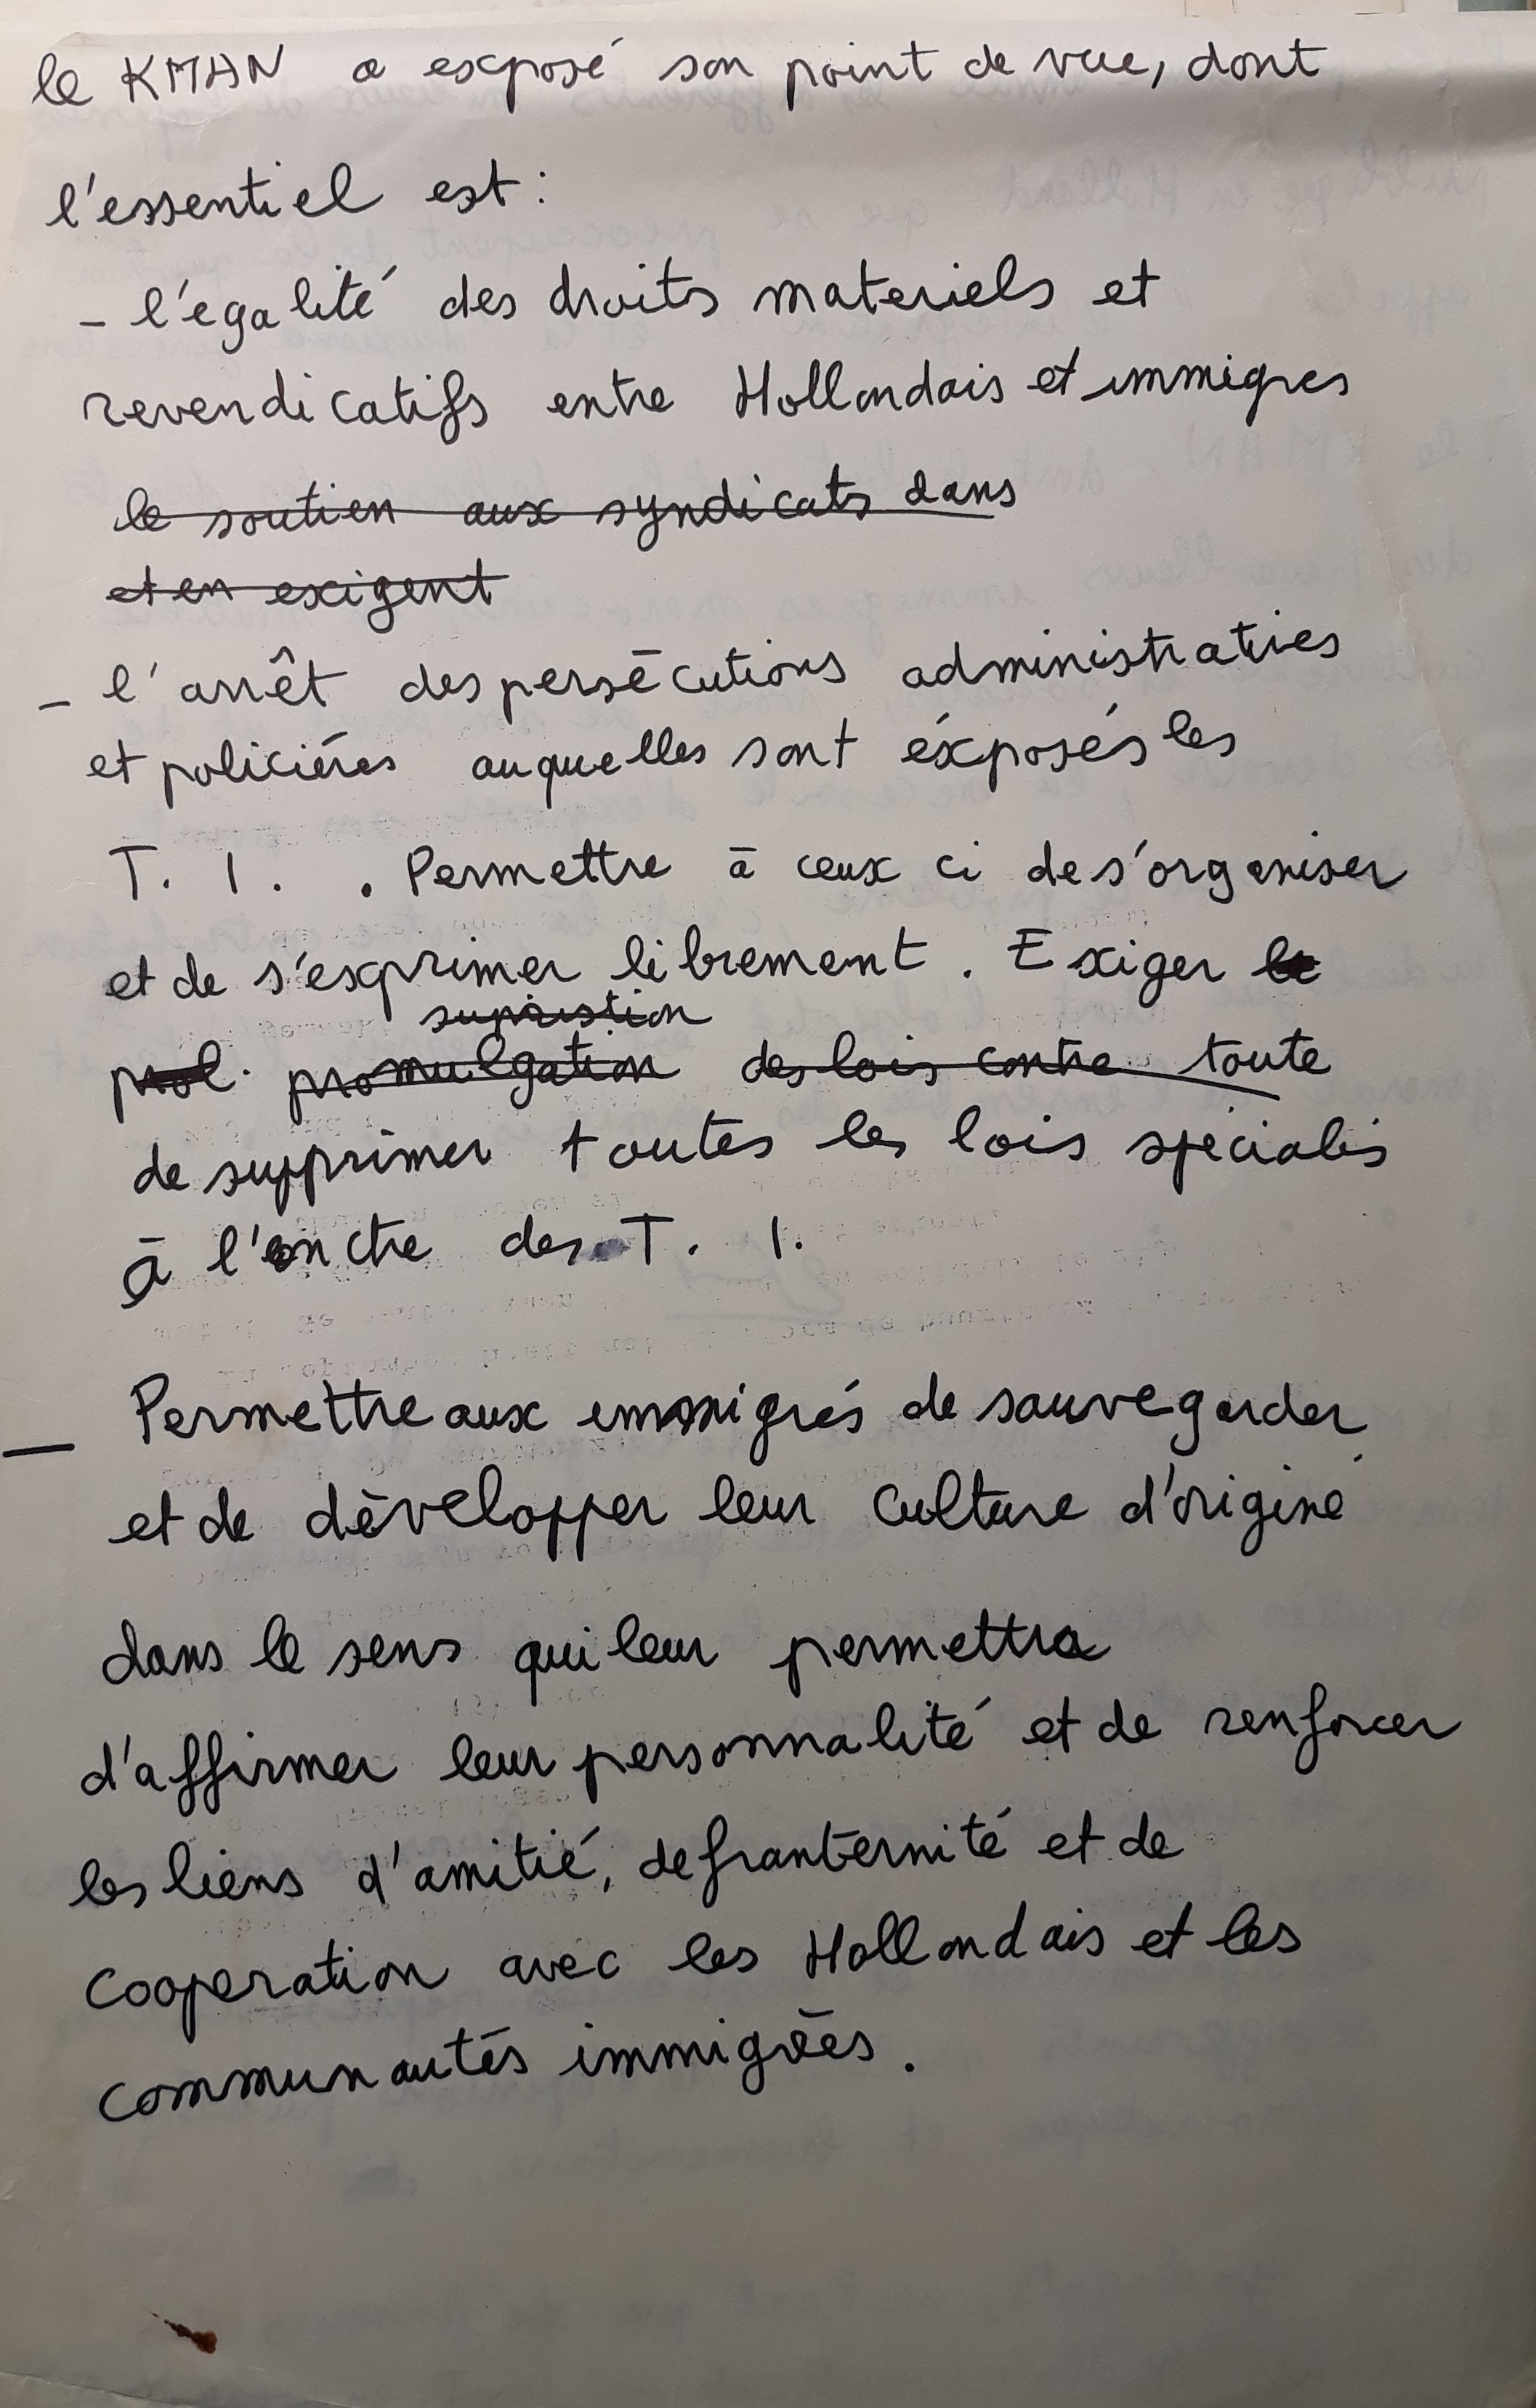 le KMAN a exposé son point de vue, dont
l'essentiel est :
- l'égalité des droits materiels et
revendicatifs entre Hollandais et immigres
le soutien aux syndicats dans
et en exigent
- l'arrêt des persécutions administratives
et policiéres auquelles sont éxposés les
T. I. . Permettre à ceux ci de s'organiser
et de s'exprimer librement. Exiger le
supression
prol. promulgation des lois contre toute
de supprimer toutes les lois spéciales
à l'enctre des T. I.
— Permettre aux immigrés de sauvegarder
et de développer leur culture d'origine
dans le sens qui leur permettra
d'affirmer leur personnalité et de renforcer
les liens d'amitié, de franternité et de
cooperation avec les Hollandais et les
communautés immigrées.